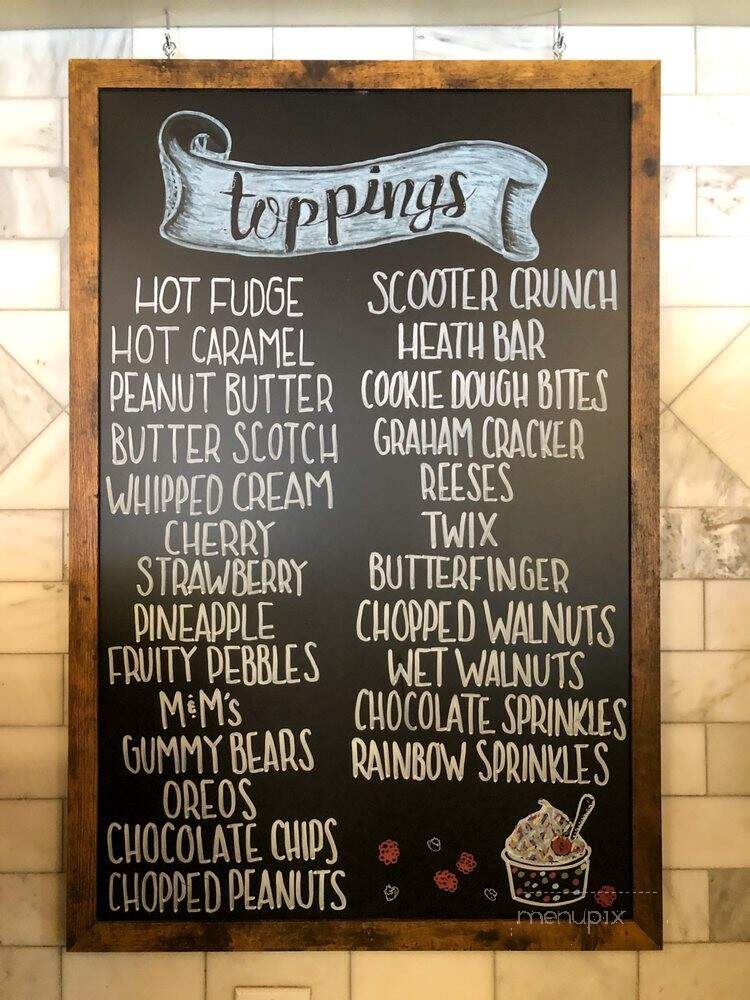 toppings
HOT FUDGE
HOT CARAMEL
PEANUT BUTTER
BUTTER SCOTCH
WHIPPED CREAM
CHERRY
STRAWBERRY
PINEAPPLE
FRUITY PEBBLES
M&M's
GUMMY BEARS
OREOS
CHOCOLATE CHIPS
CHOPPED PEANUTS
SCOOTER CRUNCH
HEATH BAR
COOKIE DOUGH BITES
GRAHAM CRACKER
REESES
TWIX
BUTTERFINGER
CHOPPED WALNUTS
WET WALNUTS
CHOCOLATE SPRINKLES
RAINBOW SPRINKLES
menupix